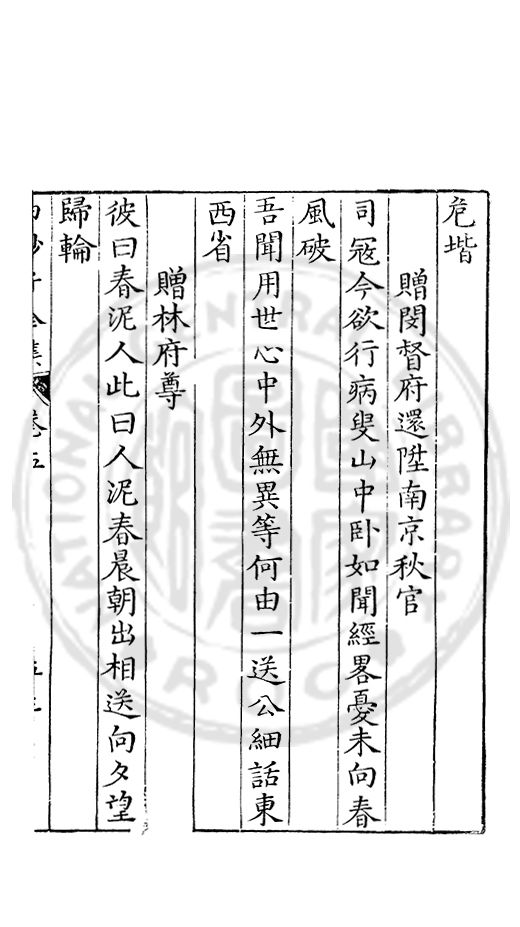 危堦
贈閔督府還陞南京秋官
司寇今欲行病叟山中卧如聞經畧憂未向春
風破
吾聞用世心中外無異等何由一送公細話東
西省
贈林府尊
彼曰春泥人此曰人泥春晨朝出相送向夕望
歸輪
卷五
NATIONAL CENTRAL LIBRARY